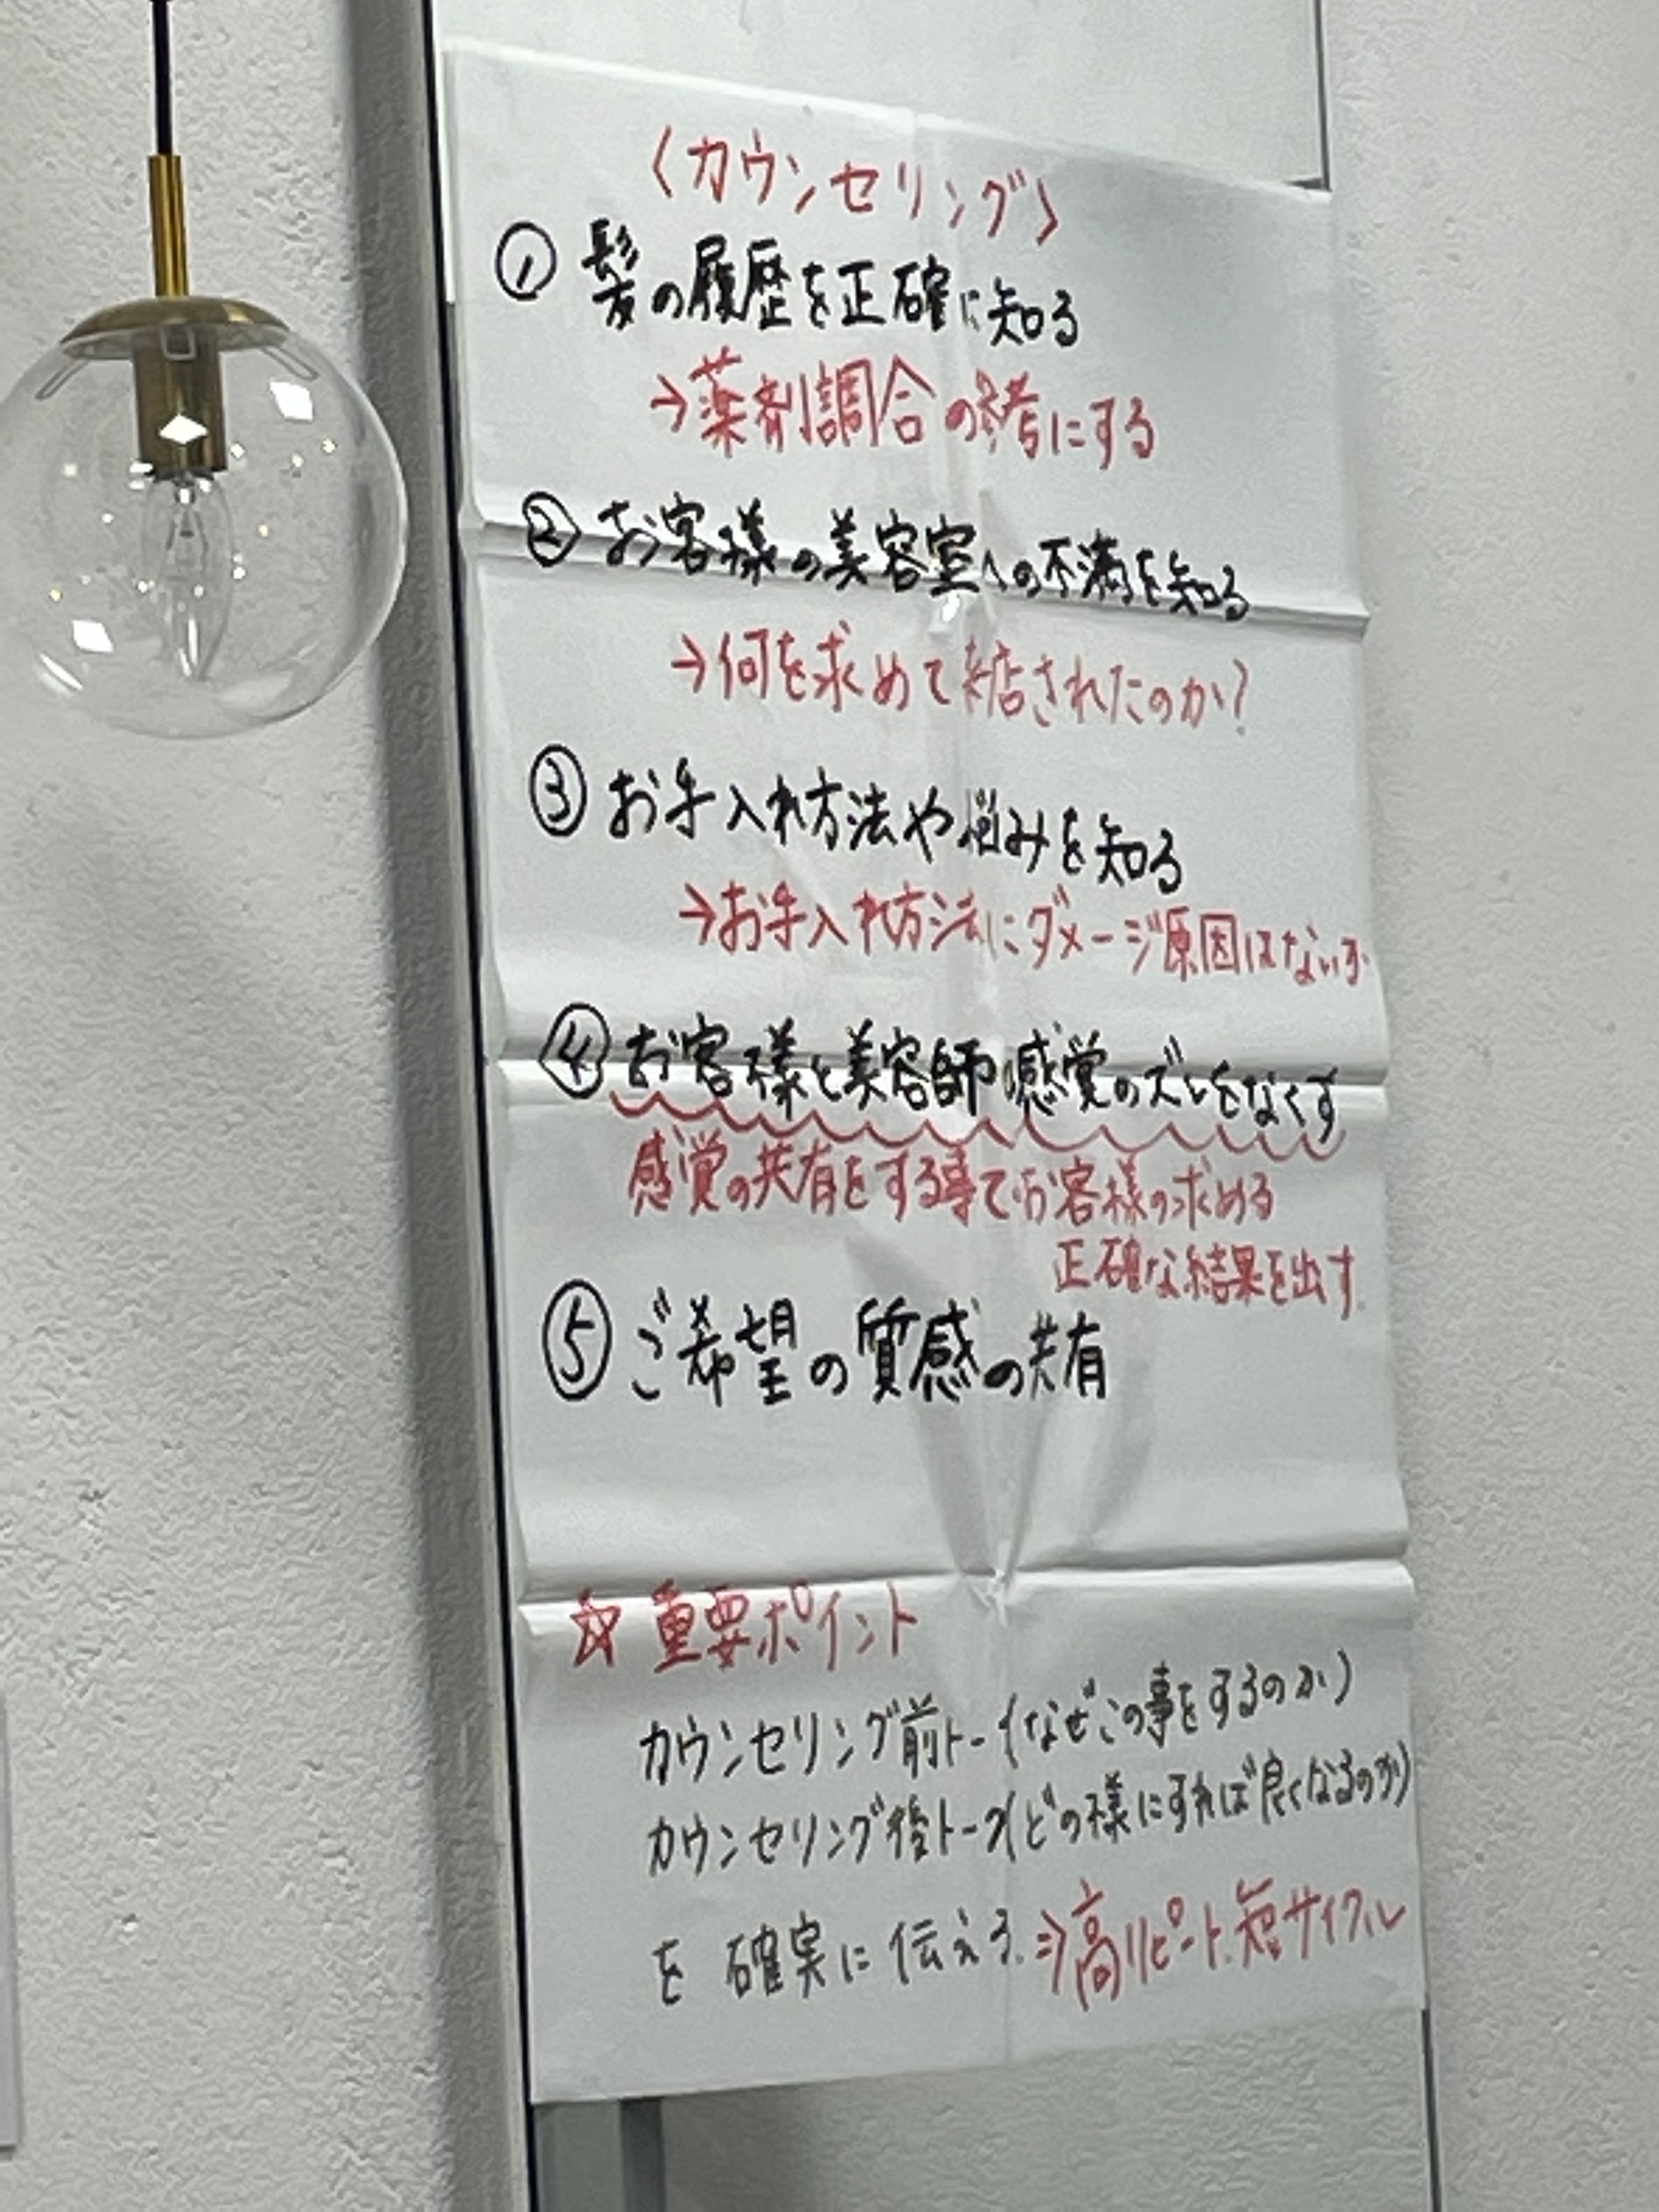 〈カウンセリング〉
① 髪の履歴を正確に知る
→薬剤調合の参考にする
② お客様の美容室への不満を知る
→何を求めて来店されたのか?
③ お手入れ方法や悩みを知る
→お手入れ方法にダメージ原因はないか
④ お客様と美容師の感覚のズレをなくす
感覚の共有をする事でお客様の求める
正確な結果を出す
⑤ ご希望の質感の共有
☆ 重要ポイント
カウンセリング前トーク(なぜこの事をするのか)
カウンセリング後トーク(どの様にすれば良くなるのか)
を 確実に伝える.⇒高リピート.短サイクル